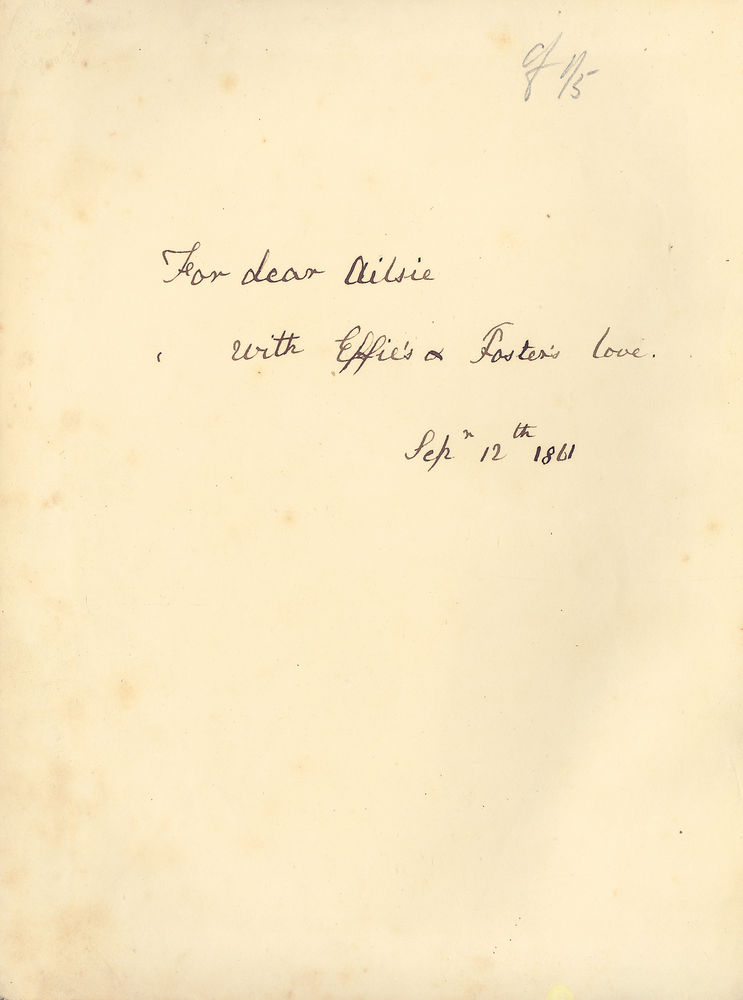 For dear Ailsie
With Effie's & Foster's love.
Sep^r 12^th 1861